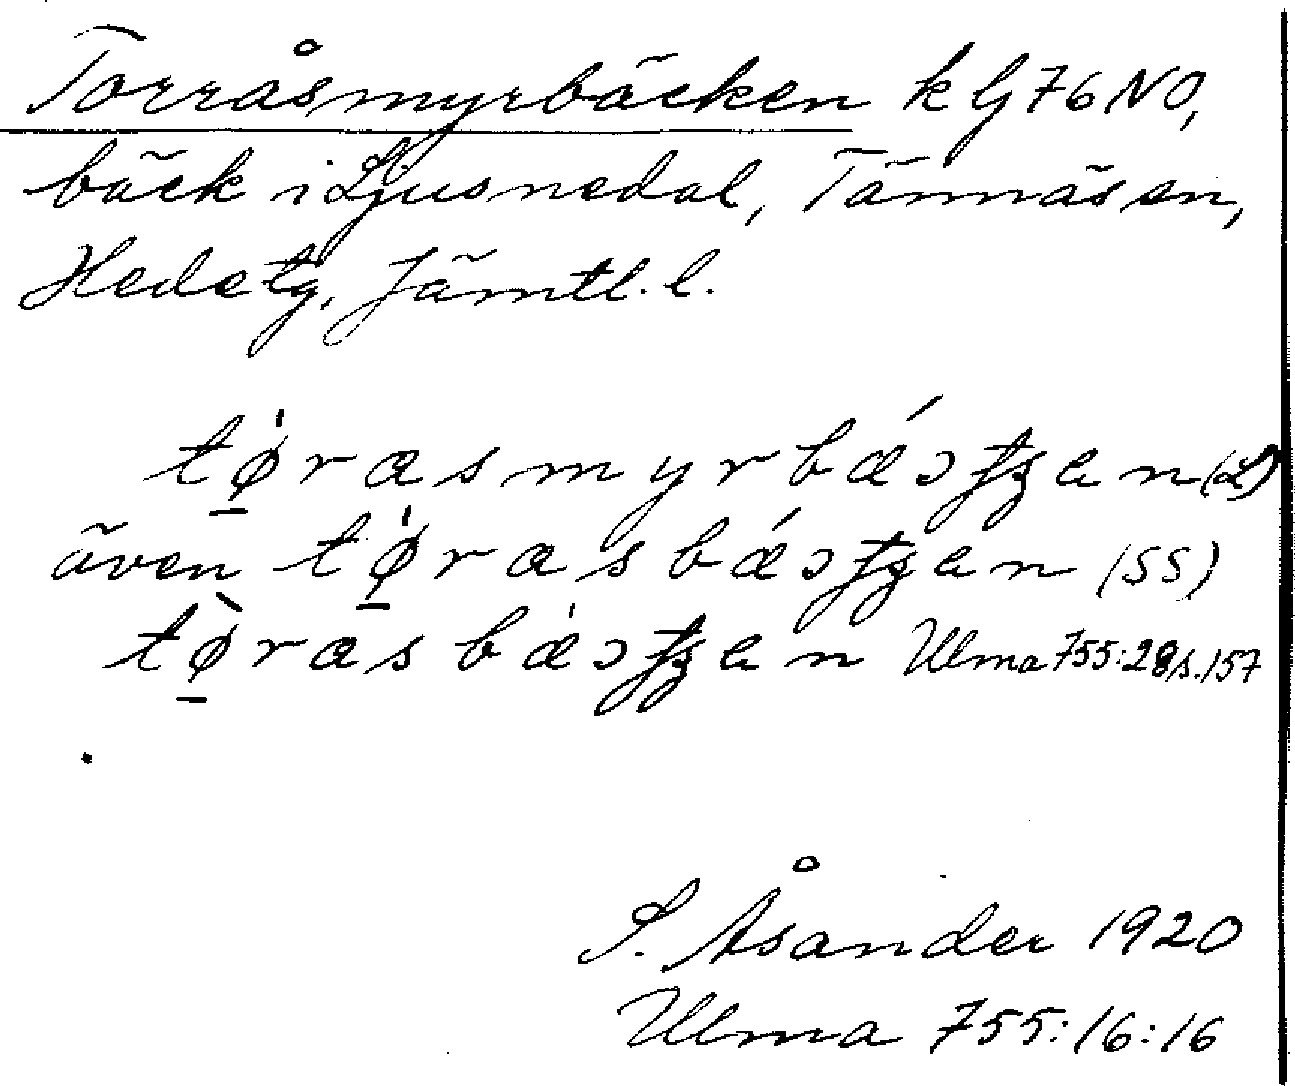 Torråsmyrbäcken k G 76 NO,
bäck i Ljusnedal, Tännäs sn,
Hede tg, Jämtl. l.
tø̠̍rasmyrbǽɔʈʂen (L)
även tø̠̍rasbǽɔʈʂen (SS)
tø̠̀rasbæ̍ɔʈʂen Ulma 755:28/s.157
S. Åsander 1920
Ulma 755:16:16